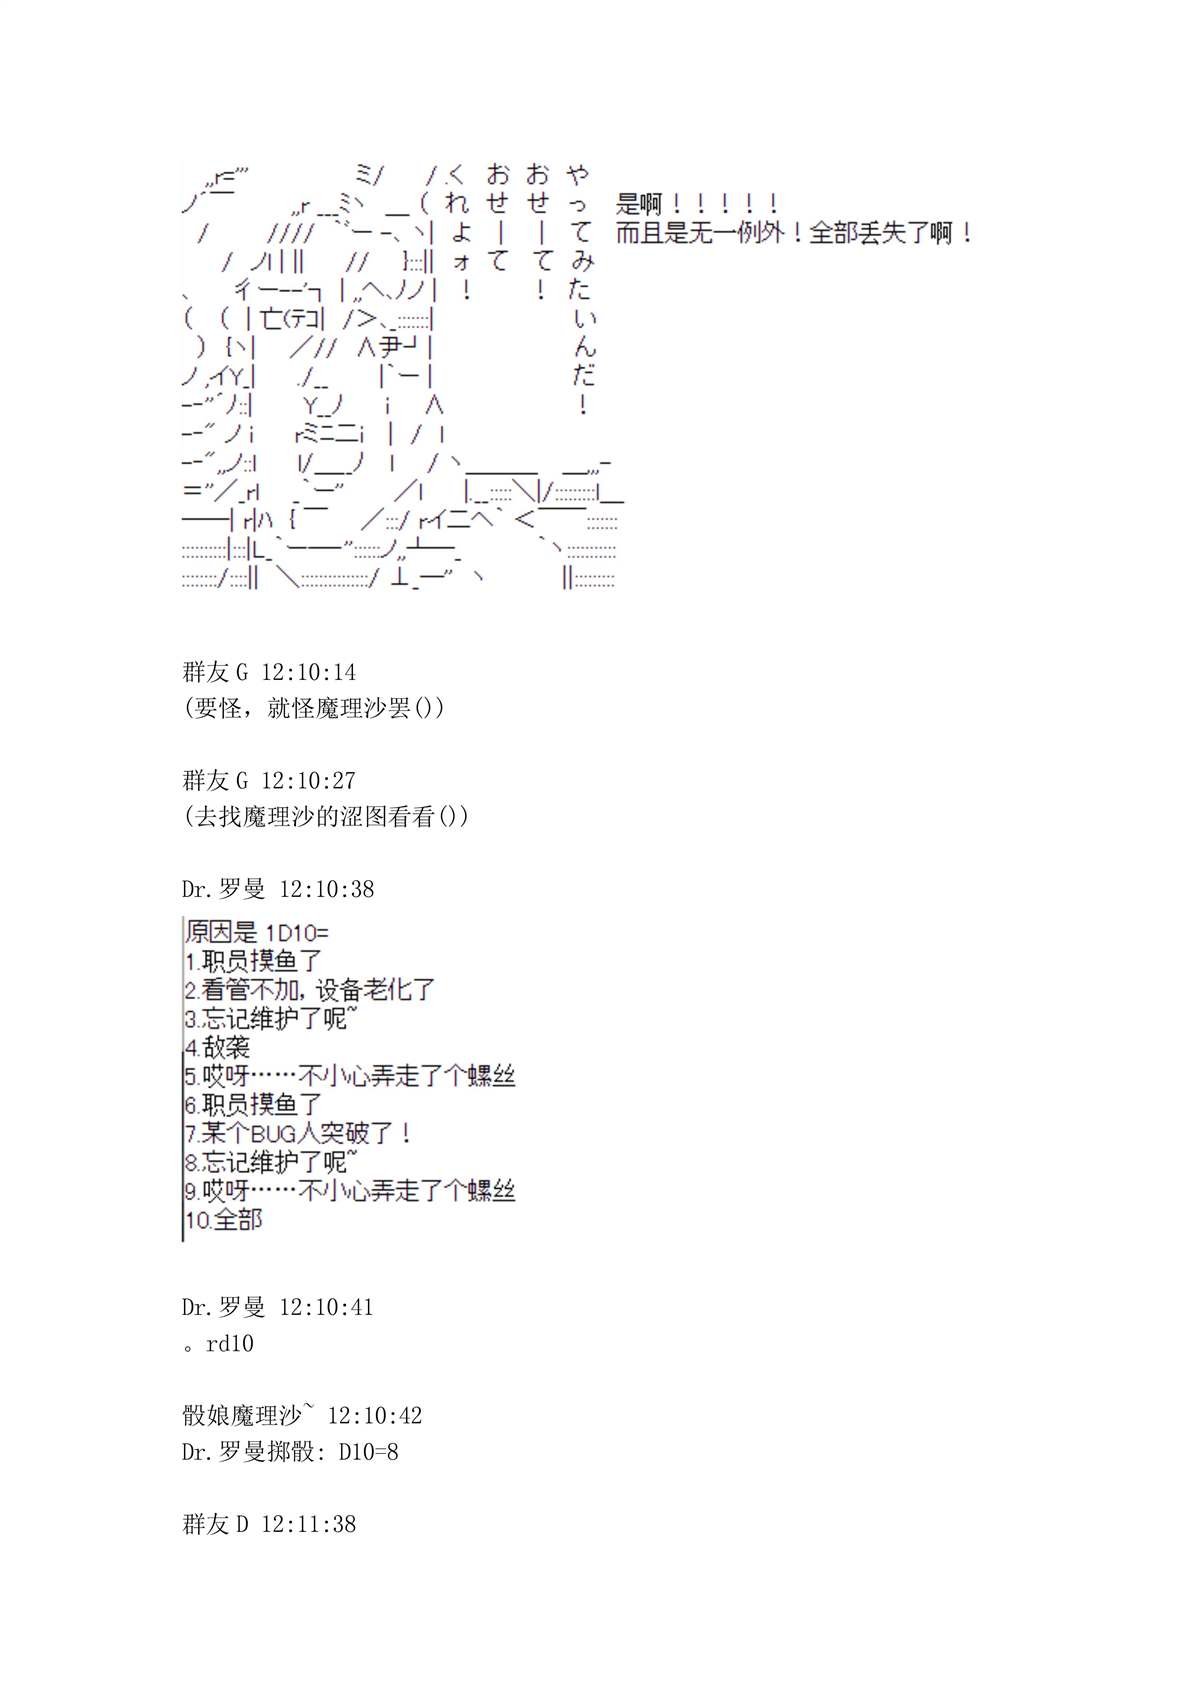 やってみたいんだ！
おせーて！
おせーて
くれよォ！
是啊！！！！！
而且是无一例外！全部丢失了啊！
群友G 12:10:14
(要怪，就怪魔理沙罢())
群友G 12:10:27
(去找魔理沙的涩图看看())
Dr.罗曼 12:10:38
原因是 1D10=
1.职员摸鱼了
2.看管不加，设备老化了
3.忘记维护了呢~
4.敌袭
5.哎呀……不小心弄走了个螺丝
6.职员摸鱼了
7.某个BUG人突破了！
8.忘记维护了呢~
9.哎呀……不小心弄走了个螺丝
10.全部
Dr.罗曼 12:10:41
。rd10
骰娘魔理沙~ 12:10:42
Dr.罗曼掷骰: D10=8
群友D 12:11:38